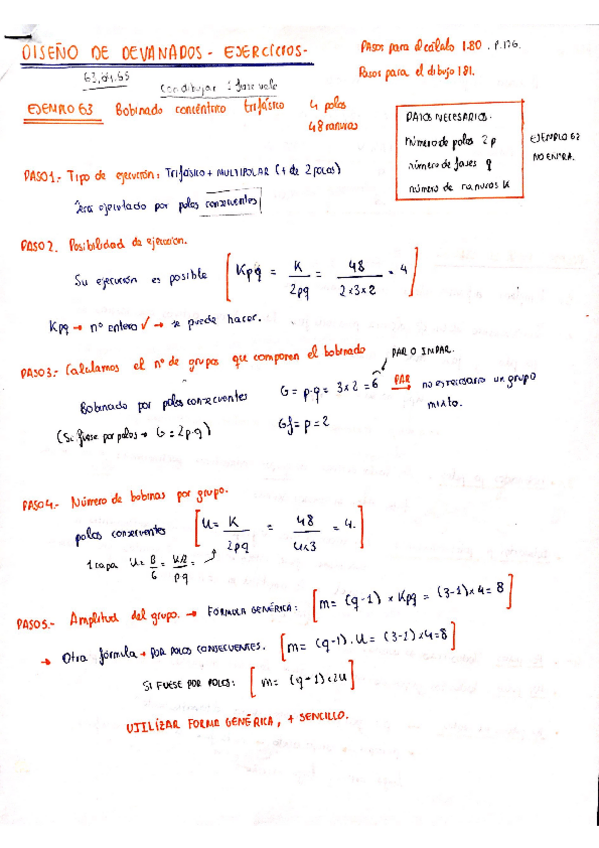 DISEÑO DE DEVANADOS - EJERCICIOS-
Pasos para el cálculo 180. P.176.
Pasos para el dibujo 181.
63, 64, 65
Con dibujar 1 fase vale
EJEMPLO 63 Bobinado concéntrico trifásico 4 polos
48 ranuras
DATOS NECESARIOS.
número de polos 2p
número de fases q
número de ranuras K
EJEMPLO 62
NO ENTRA.
PASO 1.- Tipo de ejecución: TRIFÁSICO + MULTIPOLAR (+ de 2 POLOS)
Será ejecutado por polos consecuentes
PASO 2. Posibilidad de ejecución.
Su ejecución es posible [Kpq = K / 2pq = 48 / 2x3x2 = 4]
Kpq → nº entero ✓ → se puede hacer.
PASO 3.- Calculamos el nº de grupos que componen el bobinado
PAR O IMPAR.
Bobinado por polos consecuentes G = p·q = 3x2 = 6 PAR → no es necesario un grupo
mixto.
(Si fuese por polos → G = 2p·q) Gf = p = 2
PASO 4.- Número de bobinas por grupo.
polos consecuentes [U = K / 2pq = 48 / 4x3 = 4.]
1 capa U = B / G = K/2 / pq =
PASO 5.- Amplitud del grupo. → FORMULA GENÉRICA: [m = (q-1) x Kpq = (3-1) x 4 = 8]
→ Otra fórmula → POR POLOS CONSECUENTES. [m = (q-1) · U = (3-1) x 4 = 8]
SI FUESE POR POLOS: [m = (q-1) 2U]
UTILIZAR FORMA GENÉRICA, + SENCILLO.